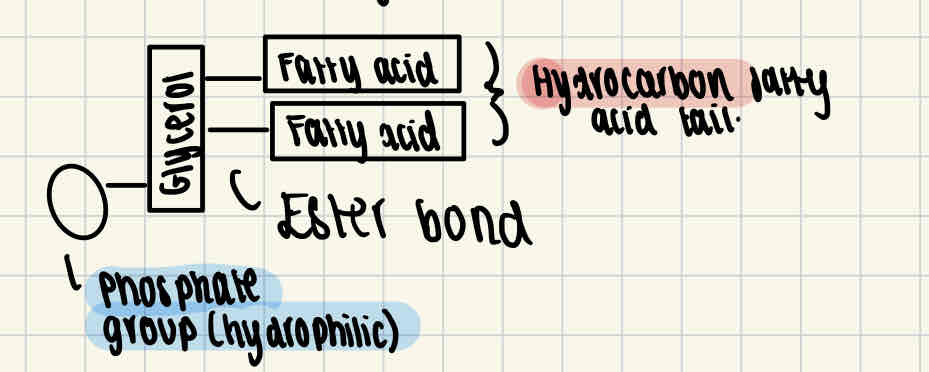 Fatty acid
Hydrocarbon fatty
acid tail.
Fatty acid
Glycerol
Ester bond
Phosphate
group (hydrophilic)